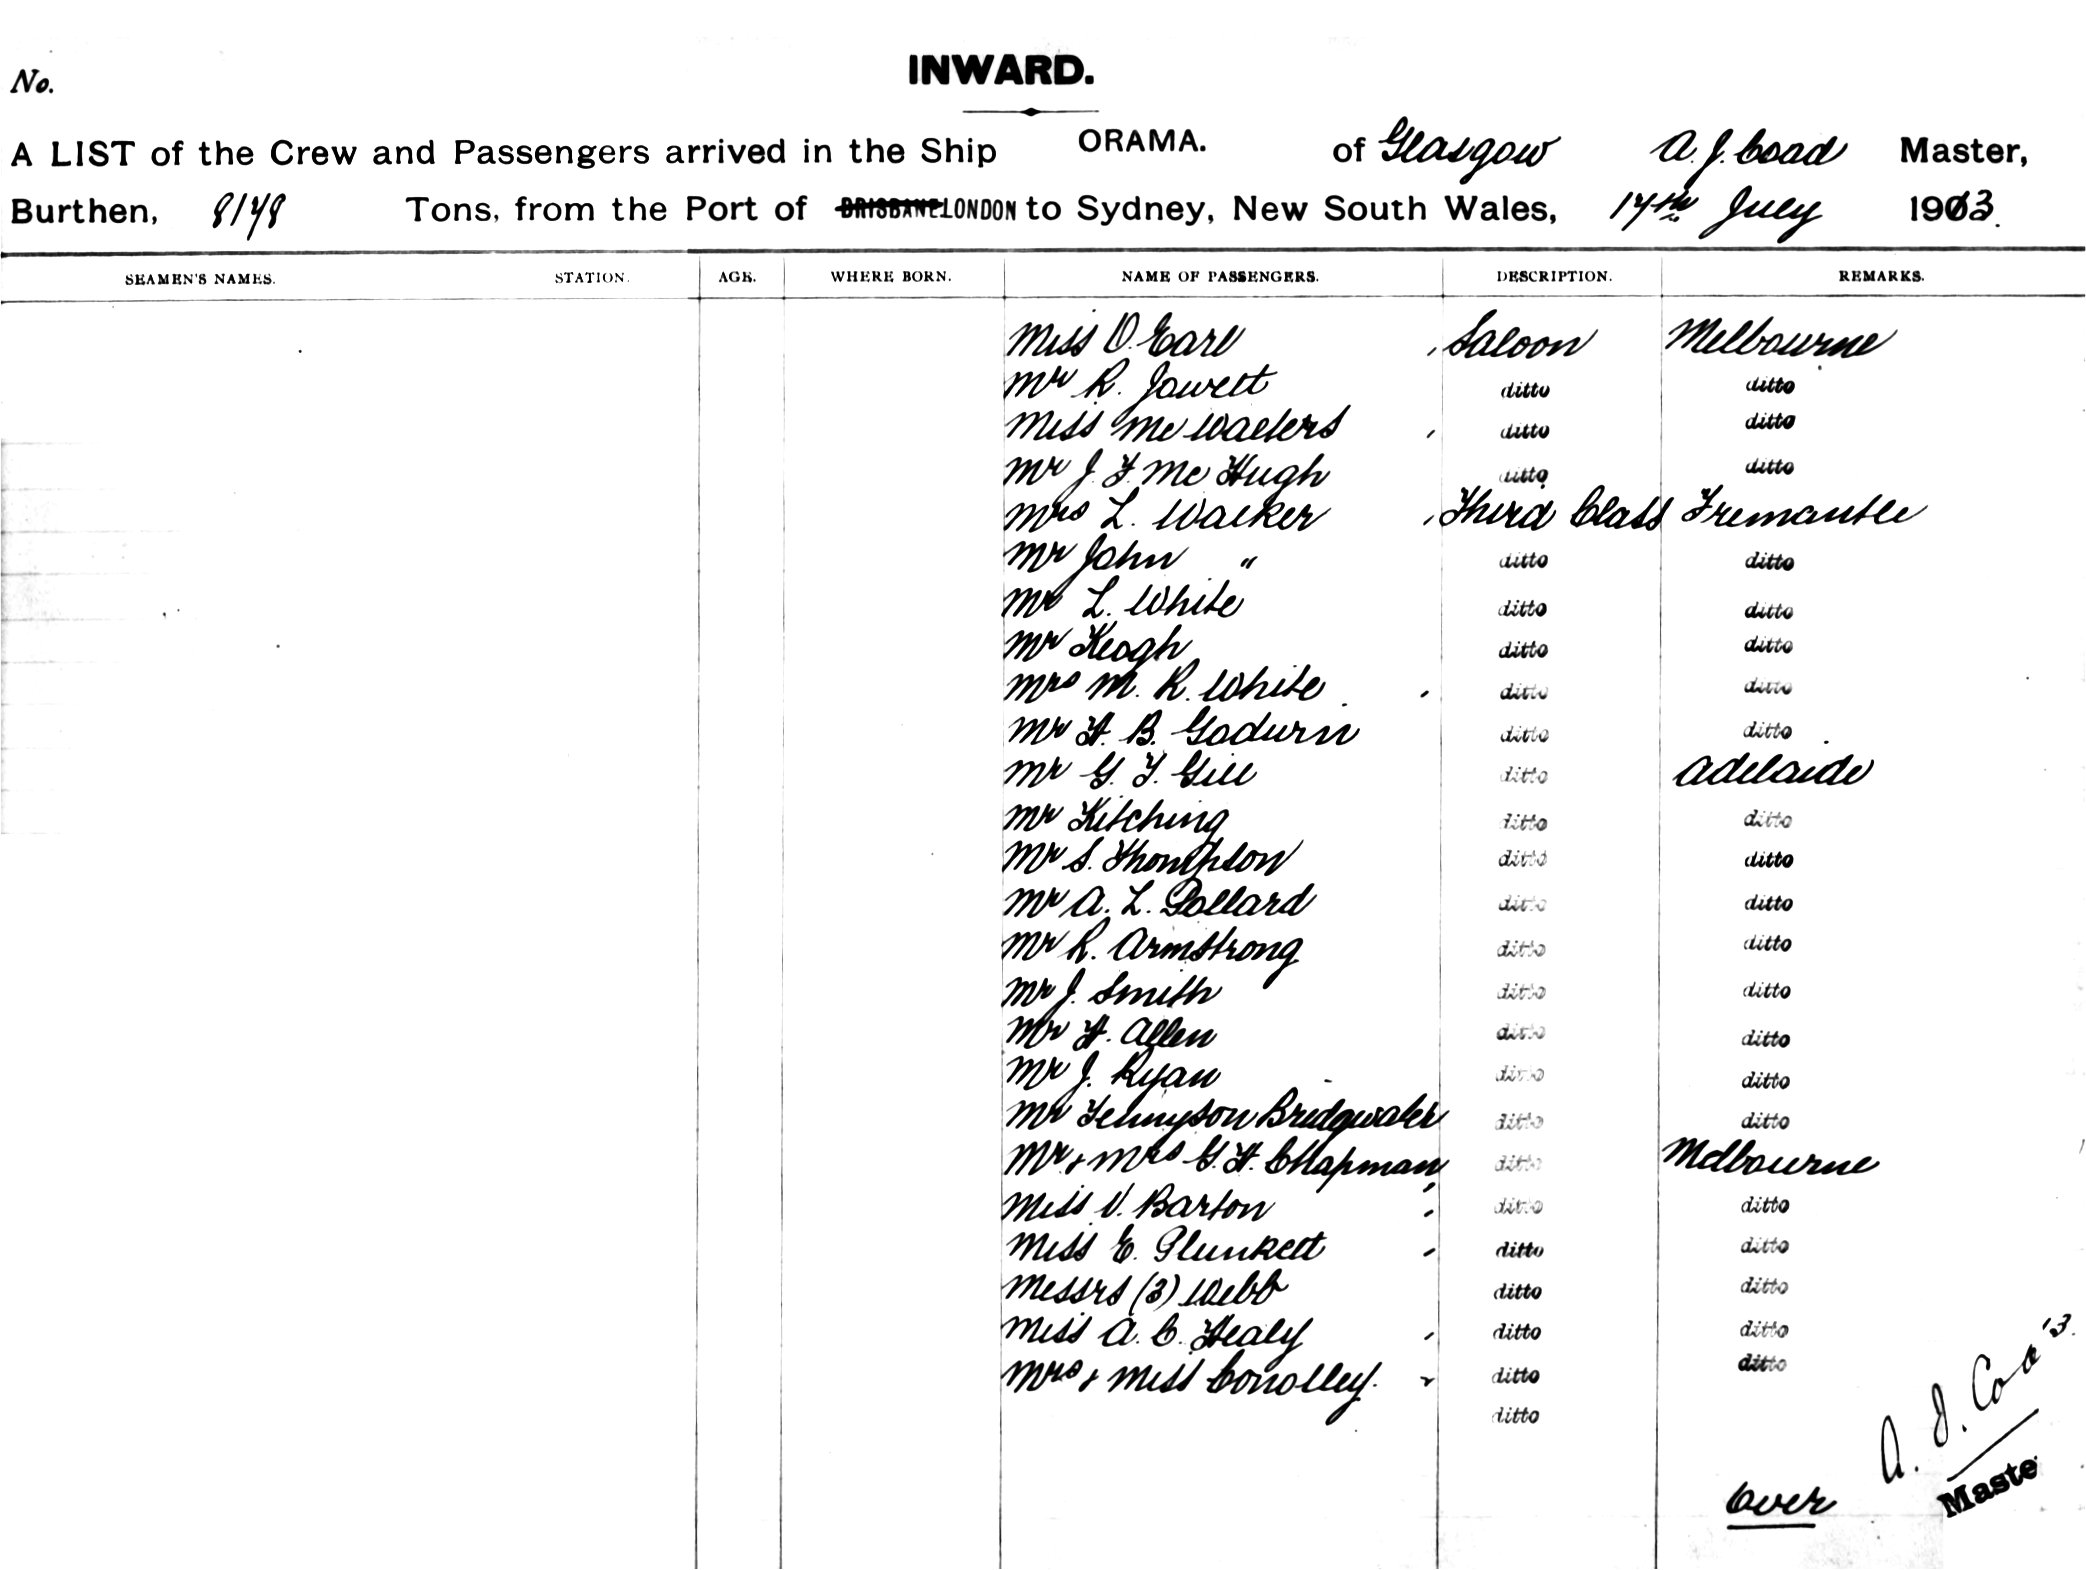 INWARD.
No.
A LIST of the Crew and Passengers arrived in the Ship ORAMA. of Glasgow A. J. Coad Master,
Burthen, 8148 Tons, from the Port of BRISBANE LONDON to Sydney, New South Wales, 17th July 1913.
SEAMEN'S NAMES. STATION. AGE. WHERE BORN. NAME OF PASSENGERS. DESCRIPTION. REMARKS.
Miss O. Earl Saloon Melbourne
Mr R. Jowett ditto ditto
Miss Mc Walters ditto ditto
Mr J. F. Mc Hugh ditto ditto
Mrs L. Walker Third Class Fremantle
Mr John " ditto ditto
Mr L. White ditto ditto
Mr Keogh ditto ditto
Mrs M. R. White ditto ditto
Mr H. B. Godurn ditto ditto
Mr G. F. Gill ditto Adelaide
Mr Kitching ditto ditto
Mr S. Thompson ditto ditto
Mr A. L. Pollard ditto ditto
Mr R. Armstrong ditto ditto
Mr J. Smith ditto ditto
Mr H. Allen ditto ditto
Mr J. Ryan ditto ditto
Mr Tennyson Bridgwater ditto ditto
Mr & Mrs G. H. Chapman ditto Melbourne
Miss V. Barton ditto ditto
Miss E. Plunkett ditto ditto
Messrs (3) Webb ditto ditto
Miss A. C. Healy ditto ditto
Mrs & Miss Conolley. ditto ditto
ditto
A. J. Coad
Maste
Over